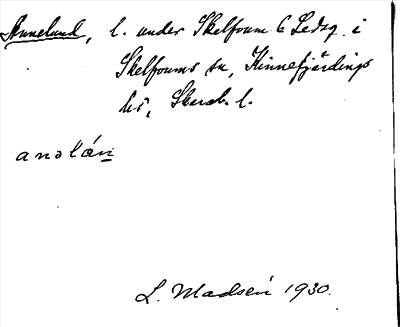 Annelund, l. under Skelfoum 6 Ledsg. i
Skelfoums sn, Kinnefjärdings
hd, Skarab. l.
anəlán
L. Madsén 1930.